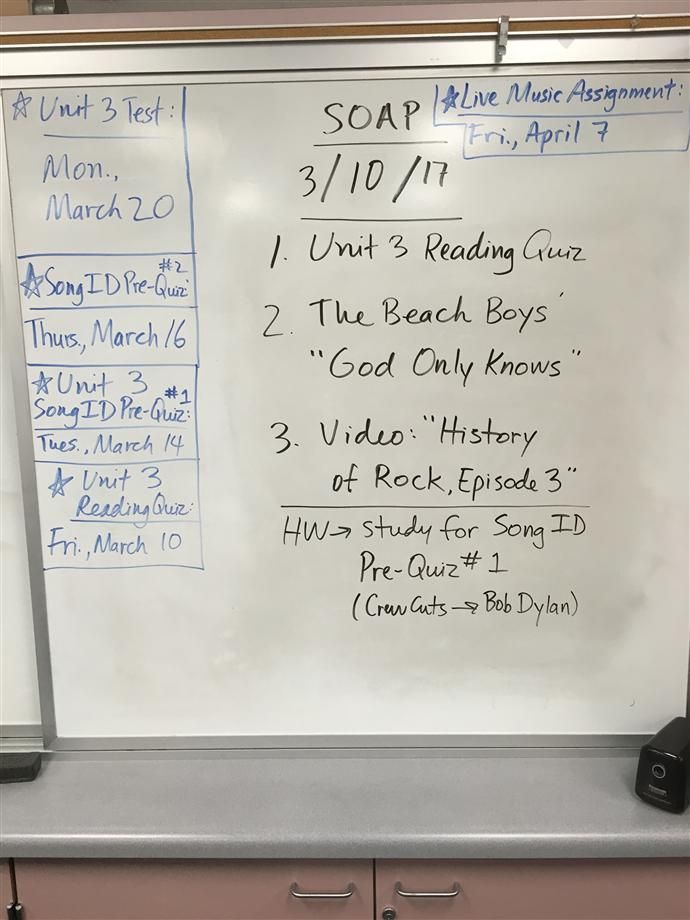 ☆ Unit 3 Test:
Mon.,
March 20
#2
☆ Song ID Pre-Quiz:
Thurs., March 16
☆ Unit 3
#1
Song ID Pre-Quiz:
Tues., March 14
☆ Unit 3
Reading Quiz:
Fri., March 10
SOAP
3/10/17
1. Unit 3 Reading Quiz
2. The Beach Boys'
"God Only Knows"
3. Video: "History
of Rock, Episode 3"
HW → Study for Song ID
Pre-Quiz #1
(Crew Cuts → Bob Dylan)
☆ Live Music Assignment:
Fri., April 7